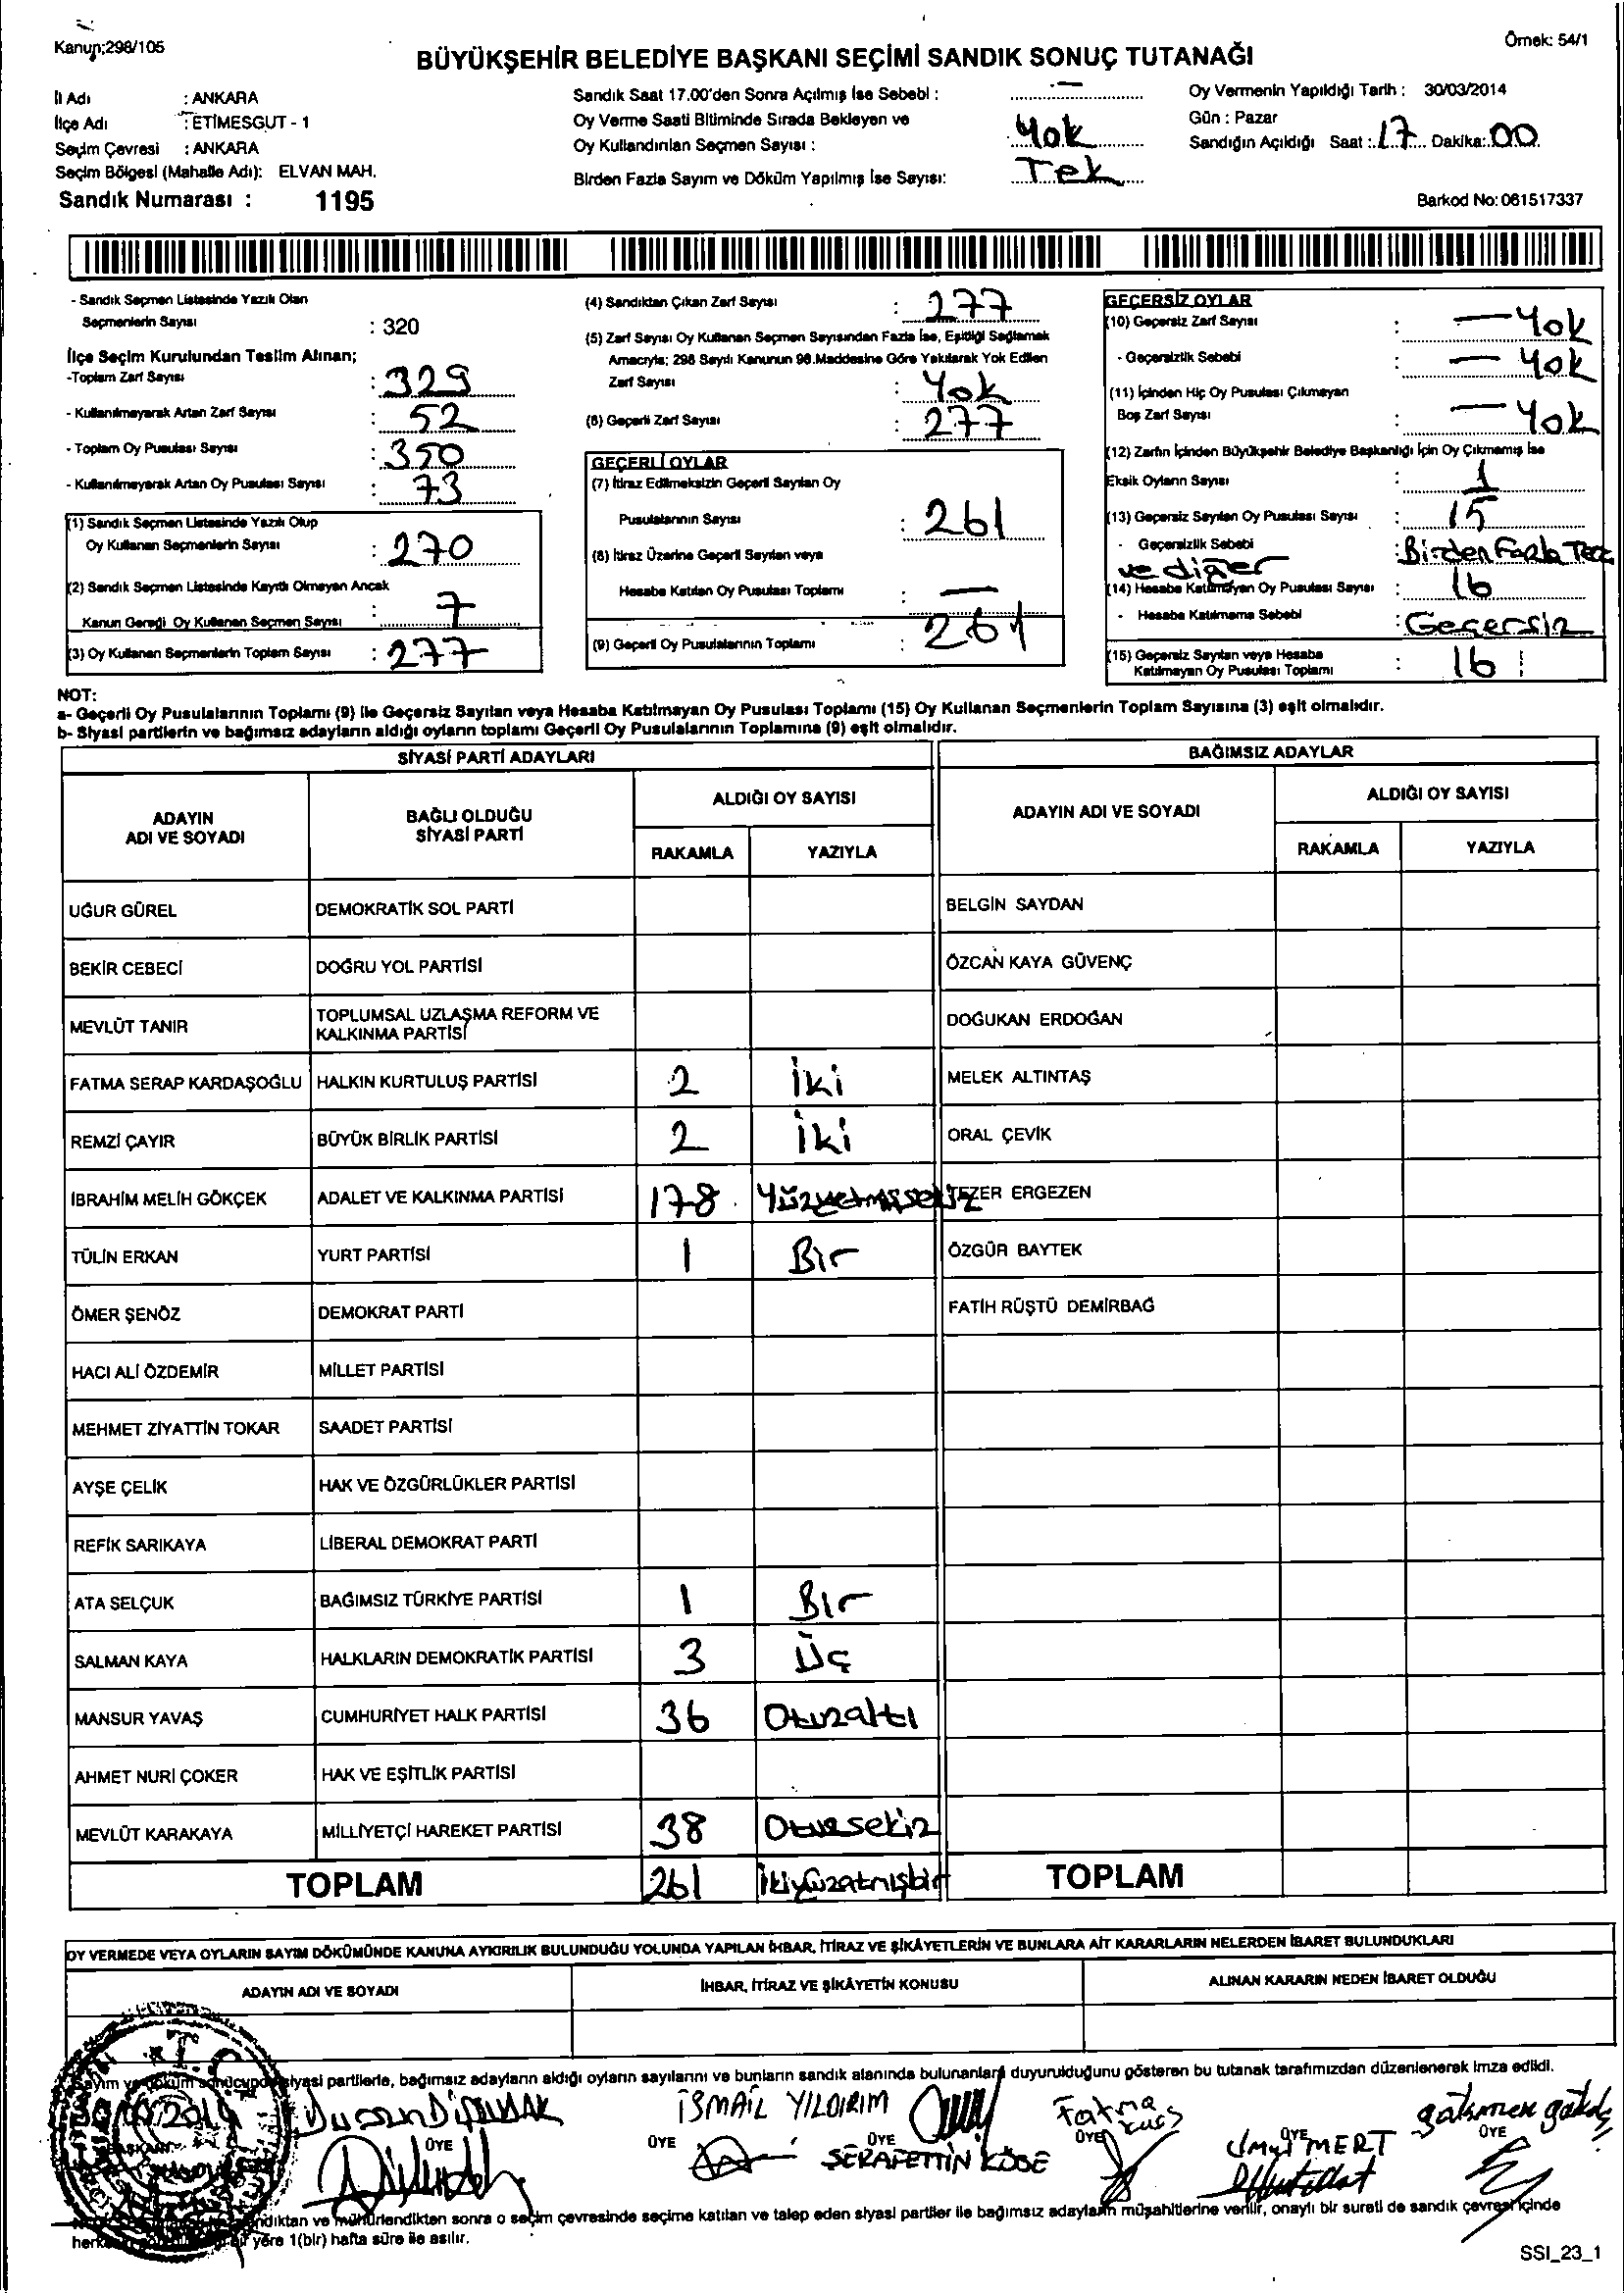 Kanun;298/105
Örnek: 54/1
BÜYÜKŞEHİR BELEDİYE BAŞKANI SEÇİMİ SANDIK SONUÇ TUTANAĞI
İl Adı : ANKARA
İlçe Adı : ETİMESGUT - 1
Seçim Çevresi : ANKARA
Seçim Bölgesi (Mahalle Adı): ELVAN MAH.
Sandık Numarası : 1195
Sandık Saat 17.00'den Sonra Açılmış İse Sebebi : —
Oy Verme Saati Bitiminde Sırada Bekleyen ve
Oy Kullandırılan Seçmen Sayısı : Yok
Birden Fazla Sayım ve Döküm Yapılmış İse Sayısı: Tek
Oy Vermenin Yapıldığı Tarih : 30/03/2014
Gün : Pazar
Sandığın Açıldığı Saat : 17 Dakika: 00
Barkod No: 061517337
- Sandık Seçmen Listesinde Yazılı Olan
Seçmenlerin Sayısı : 320
İlçe Seçim Kurulundan Teslim Alınan;
-Toplam Zarf Sayısı : 329
- Kullanılmayarak Artan Zarf Sayısı : 52
- Toplam Oy Pusulası Sayısı : 350
- Kullanılmayarak Artan Oy Pusulası Sayısı : 73
(1) Sandık Seçmen Listesinde Yazılı Olup
Oy Kullanan Seçmenlerin Sayısı : 270
(2) Sandık Seçmen Listesinde Kayıtlı Olmayan Ancak
Kanun Gereği Oy Kullanan Seçmen Sayısı : 7
(3) Oy Kullanan Seçmenlerin Toplam Sayısı : 277
(4) Sandıktan Çıkan Zarf Sayısı : 277
(5) Zarf Sayısı Oy Kullanan Seçmen Sayısından Fazla İse, Eşitliği Sağlamak
Amacıyla; 298 Sayılı Kanunun 98.Maddesine Göre Yakılarak Yok Edilen
Zarf Sayısı : Yok
(6) Geçerli Zarf Sayısı : 277
GEÇERLİ OYLAR
(7) İtiraz Edilmeksizin Geçerli Sayılan Oy
Pusulalarının Sayısı : 261
(8) İtiraz Üzerine Geçerli Sayılan veya
Hesaba Katılan Oy Pusulası Toplamı : —
(9) Geçerli Oy Pusulalarının Toplamı : 261
GEÇERSİZ OYLAR
(10) Geçersiz Zarf Sayısı : — Yok
- Geçersizlik Sebebi : — Yok
(11) İçinden Hiç Oy Pusulası Çıkmayan
Boş Zarf Sayısı : — Yok
(12) Zarfın İçinden Büyükşehir Belediye Başkanlığı İçin Oy Çıkmamış İse
Eksik Oyların Sayısı : 1
(13) Geçersiz Sayılan Oy Pusulası Sayısı : 15
- Geçersizlik Sebebi : Birden Fazla Terc
ve diğer
(14) Hesaba Katılmayan Oy Pusulası Sayısı : 16
- Hesaba Katılmama Sebebi : Geçersiz
(15) Geçersiz Sayılan veya Hesaba
Katılmayan Oy Pusulası Toplamı : 16
NOT:
a- Geçerli Oy Pusulalarının Toplamı (9) ile Geçersiz Sayılan veya Hesaba Katılmayan Oy Pusulası Toplamı (15) Oy Kullanan Seçmenlerin Toplam Sayısına (3) eşit olmalıdır.
b- Siyasi partilerin ve bağımsız adayların aldığı oyların toplamı Geçerli Oy Pusulalarının Toplamına (9) eşit olmalıdır.
SİYASİ PARTİ ADAYLARI BAĞIMSIZ ADAYLAR
ADAYIN ADI VE SOYADI BAĞLI OLDUĞU SİYASİ PARTİ ALDIĞI OY SAYISI ADAYIN ADI VE SOYADI ALDIĞI OY SAYISI
RAKAMLA YAZIYLA RAKAMLA YAZIYLA
UĞUR GÜREL DEMOKRATİK SOL PARTİ BELGİN SAYDAN
BEKİR CEBECİ DOĞRU YOL PARTİSİ ÖZCAN KAYA GÜVENÇ
MEVLÜT TANIR TOPLUMSAL UZLAŞMA REFORM VE KALKINMA PARTİSİ DOĞUKAN ERDOĞAN
FATMA SERAP KARDAŞOĞLU HALKIN KURTULUŞ PARTİSİ 2 İki MELEK ALTINTAŞ
REMZİ ÇAYIR BÜYÜK BİRLİK PARTİSİ 2 İki ORAL ÇEVİK
İBRAHİM MELİH GÖKÇEK ADALET VE KALKINMA PARTİSİ 178 Yüzyetmişsekiz TEZER ERGEZEN
TÜLİN ERKAN YURT PARTİSİ 1 Bir ÖZGÜR BAYTEK
ÖMER ŞENÖZ DEMOKRAT PARTİ FATİH RÜŞTÜ DEMİRBAĞ
HACI ALİ ÖZDEMİR MİLLET PARTİSİ
MEHMET ZİYATTİN TOKAR SAADET PARTİSİ
AYŞE ÇELİK HAK VE ÖZGÜRLÜKLER PARTİSİ
REFİK SARIKAYA LİBERAL DEMOKRAT PARTİ
ATA SELÇUK BAĞIMSIZ TÜRKİYE PARTİSİ 1 Bir
SALMAN KAYA HALKLARIN DEMOKRATİK PARTİSİ 3 Üç
MANSUR YAVAŞ CUMHURİYET HALK PARTİSİ 36 Otuzaltı
AHMET NURİ ÇOKER HAK VE EŞİTLİK PARTİSİ
MEVLÜT KARAKAYA MİLLİYETÇİ HAREKET PARTİSİ 38 Otuzsekiz
TOPLAM 261 İkiyüzatmışbir TOPLAM
OY VERMEDE VEYA OYLARIN SAYIM DÖKÜMÜNDE KANUNA AYKIRILIK BULUNDUĞU YOLUNDA YAPILAN İHBAR, İTİRAZ VE ŞİKÂYETLERİN VE BUNLARA AİT KARARLARIN NELERDEN İBARET BULUNDUKLARI
ADAYIN ADI VE SOYADI İHBAR, İTİRAZ VE ŞİKÂYETİN KONUSU ALINAN KARARIN NEDEN İBARET OLDUĞU
T.C.
siyasi partilerle, bağımsız adayların aldığı oyların sayılarını ve bunların sandık alanında bulunanlara duyurulduğunu gösteren bu tutanak tarafımızdan düzenlenerek imza edildi.
İSMAİL YILDIRIM Fatma
ÜYE ÜYE ÜYE ÜYE ÜYE ÜYE
ŞERAFETTİN KÖSE MERT
ve mühürlendikten sonra o seçim çevresinde seçime katılan ve talep eden siyasi partiler ile bağımsız adayların müşahitlerine verilir, onaylı bir sureti de sandık çevresi içinde
bir yere 1(bir) hafta süre ile asılır.
SSI_23_1